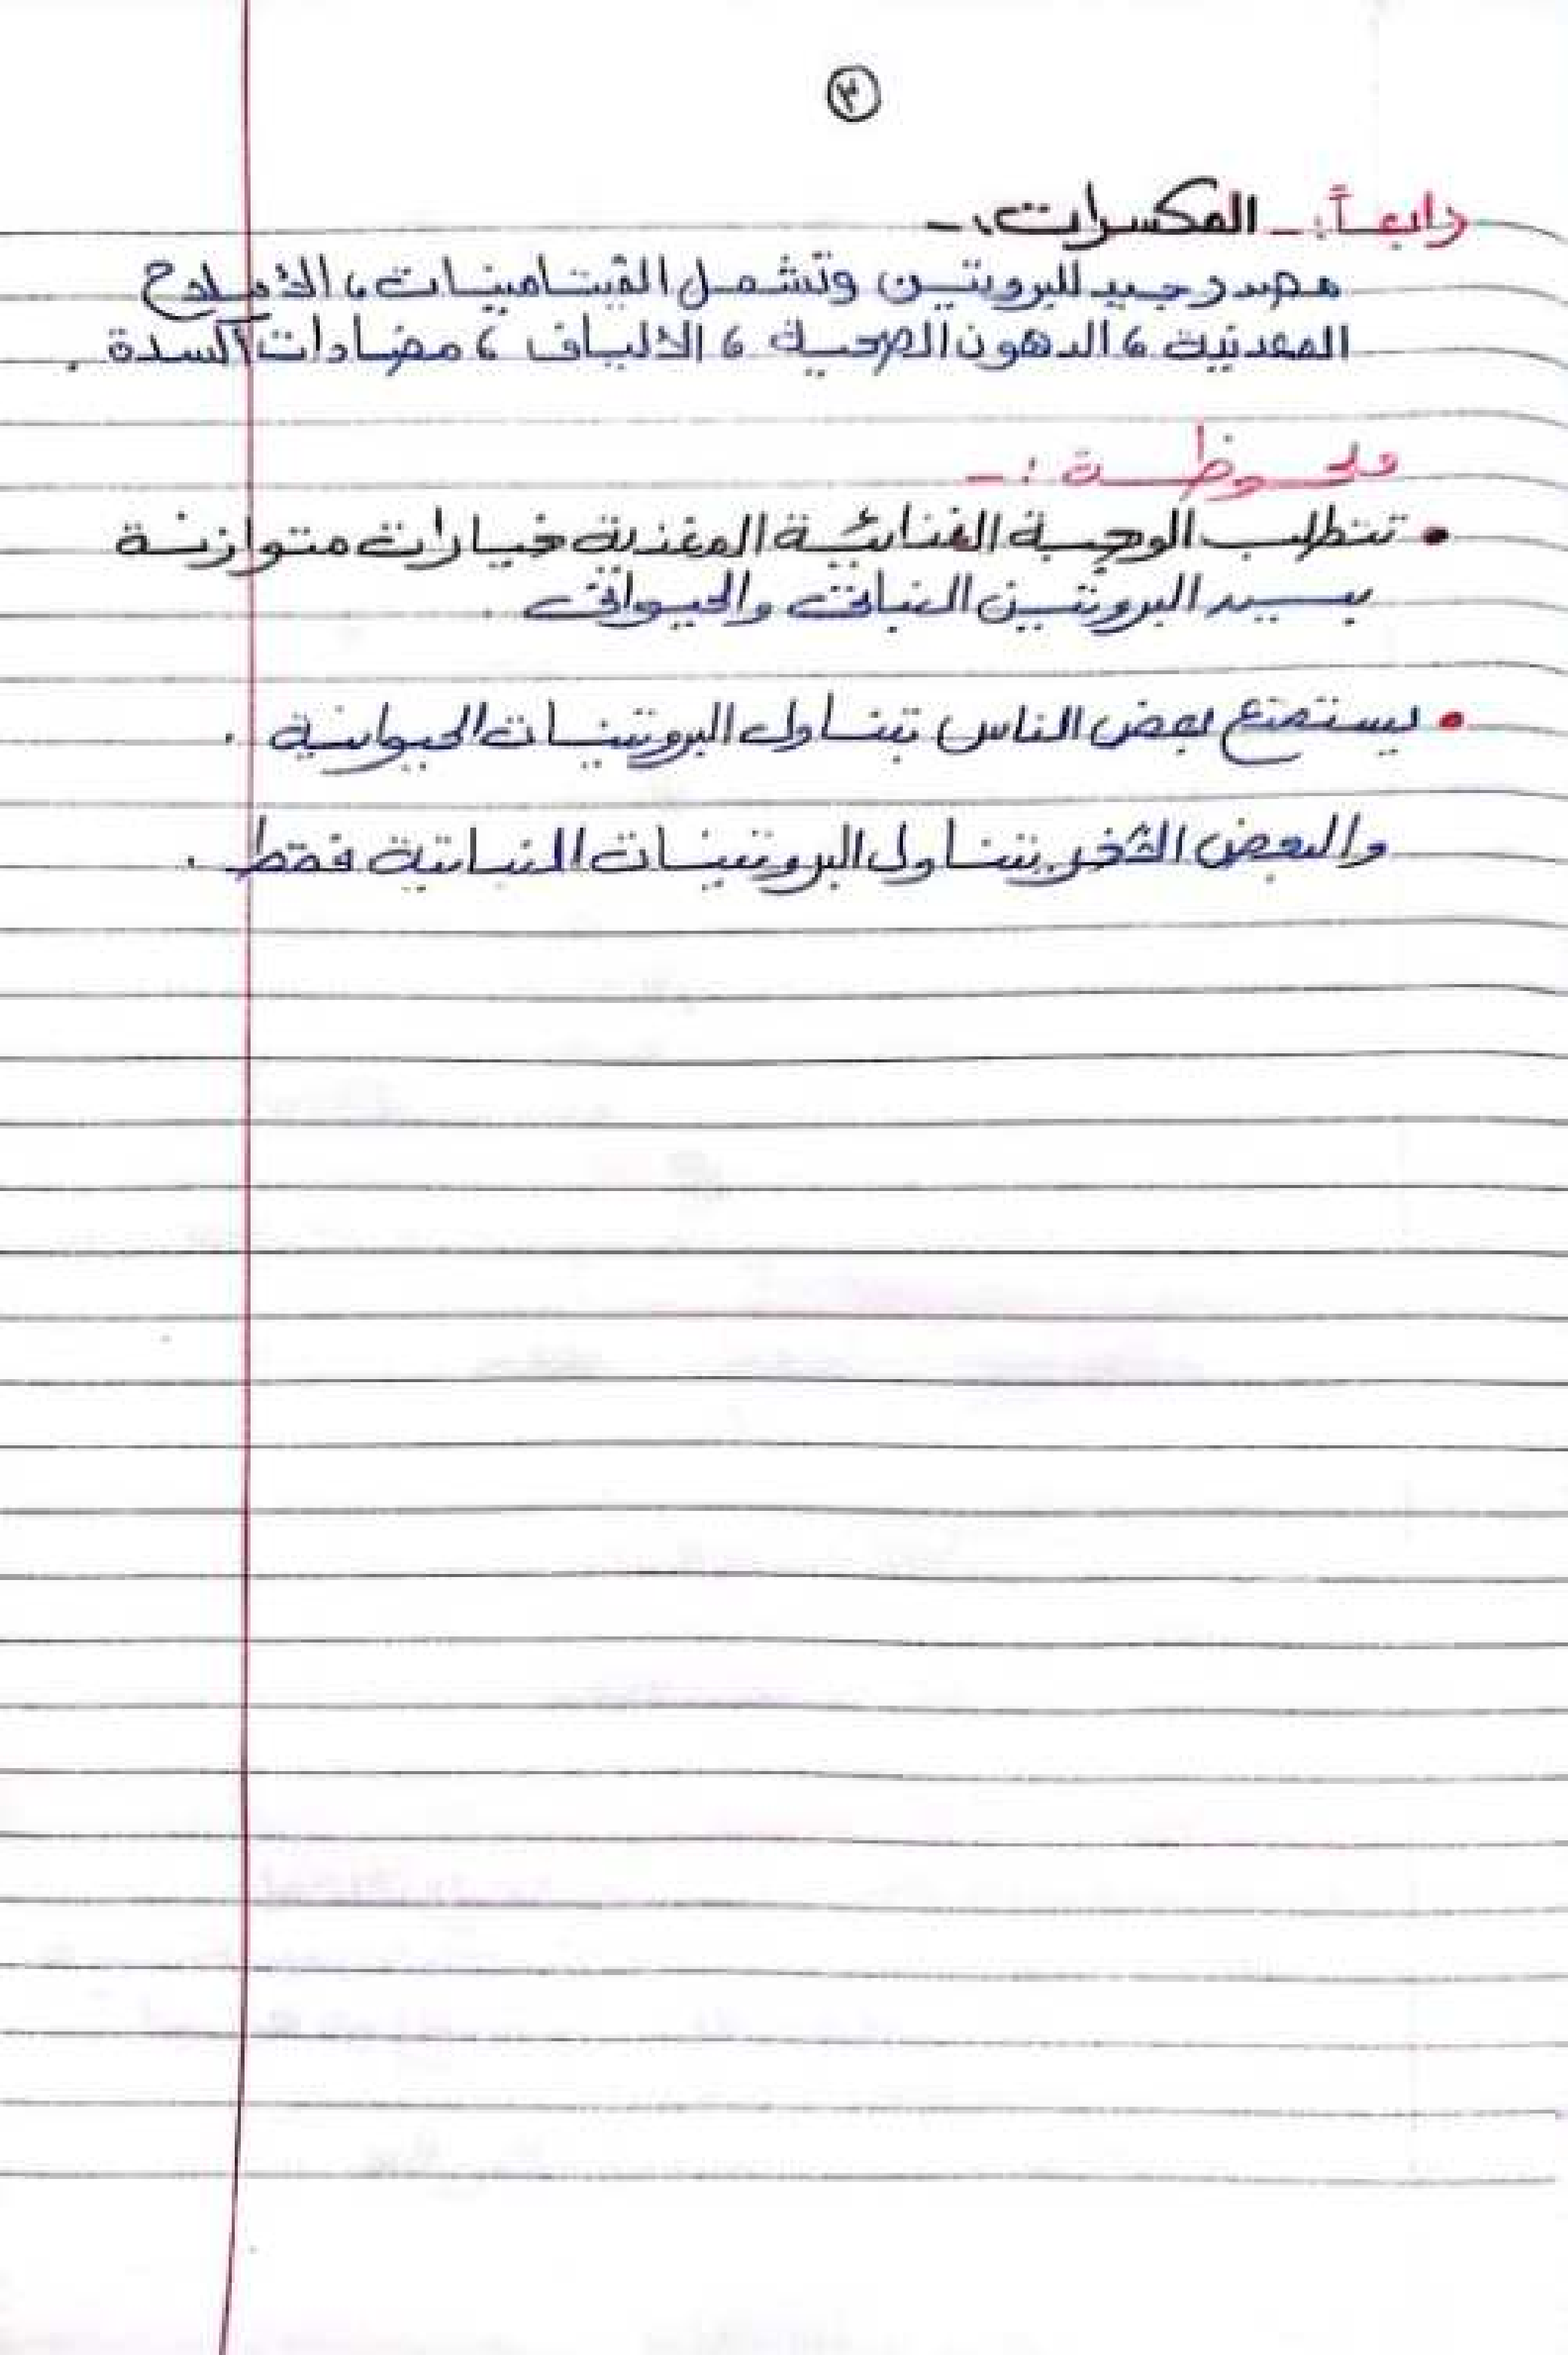 ٣
رابعاً :- المكسرات :-
مصدر جيد للبروتين وتشمل الفيتامينات ، الأملاح
المعدنية ، الدهون الصحية ، الألياف ، مضادات السدة .
ملحوظة :-
• تتطلب الوجبة الغذائية المغذية خيارات متوازنة
بين البروتين النباتى والحيوانى .
• يستمتع بعض الناس بتناول البروتينات الحيوانية .
والبعض الأخر يتناول البروتينات النباتية فقط .